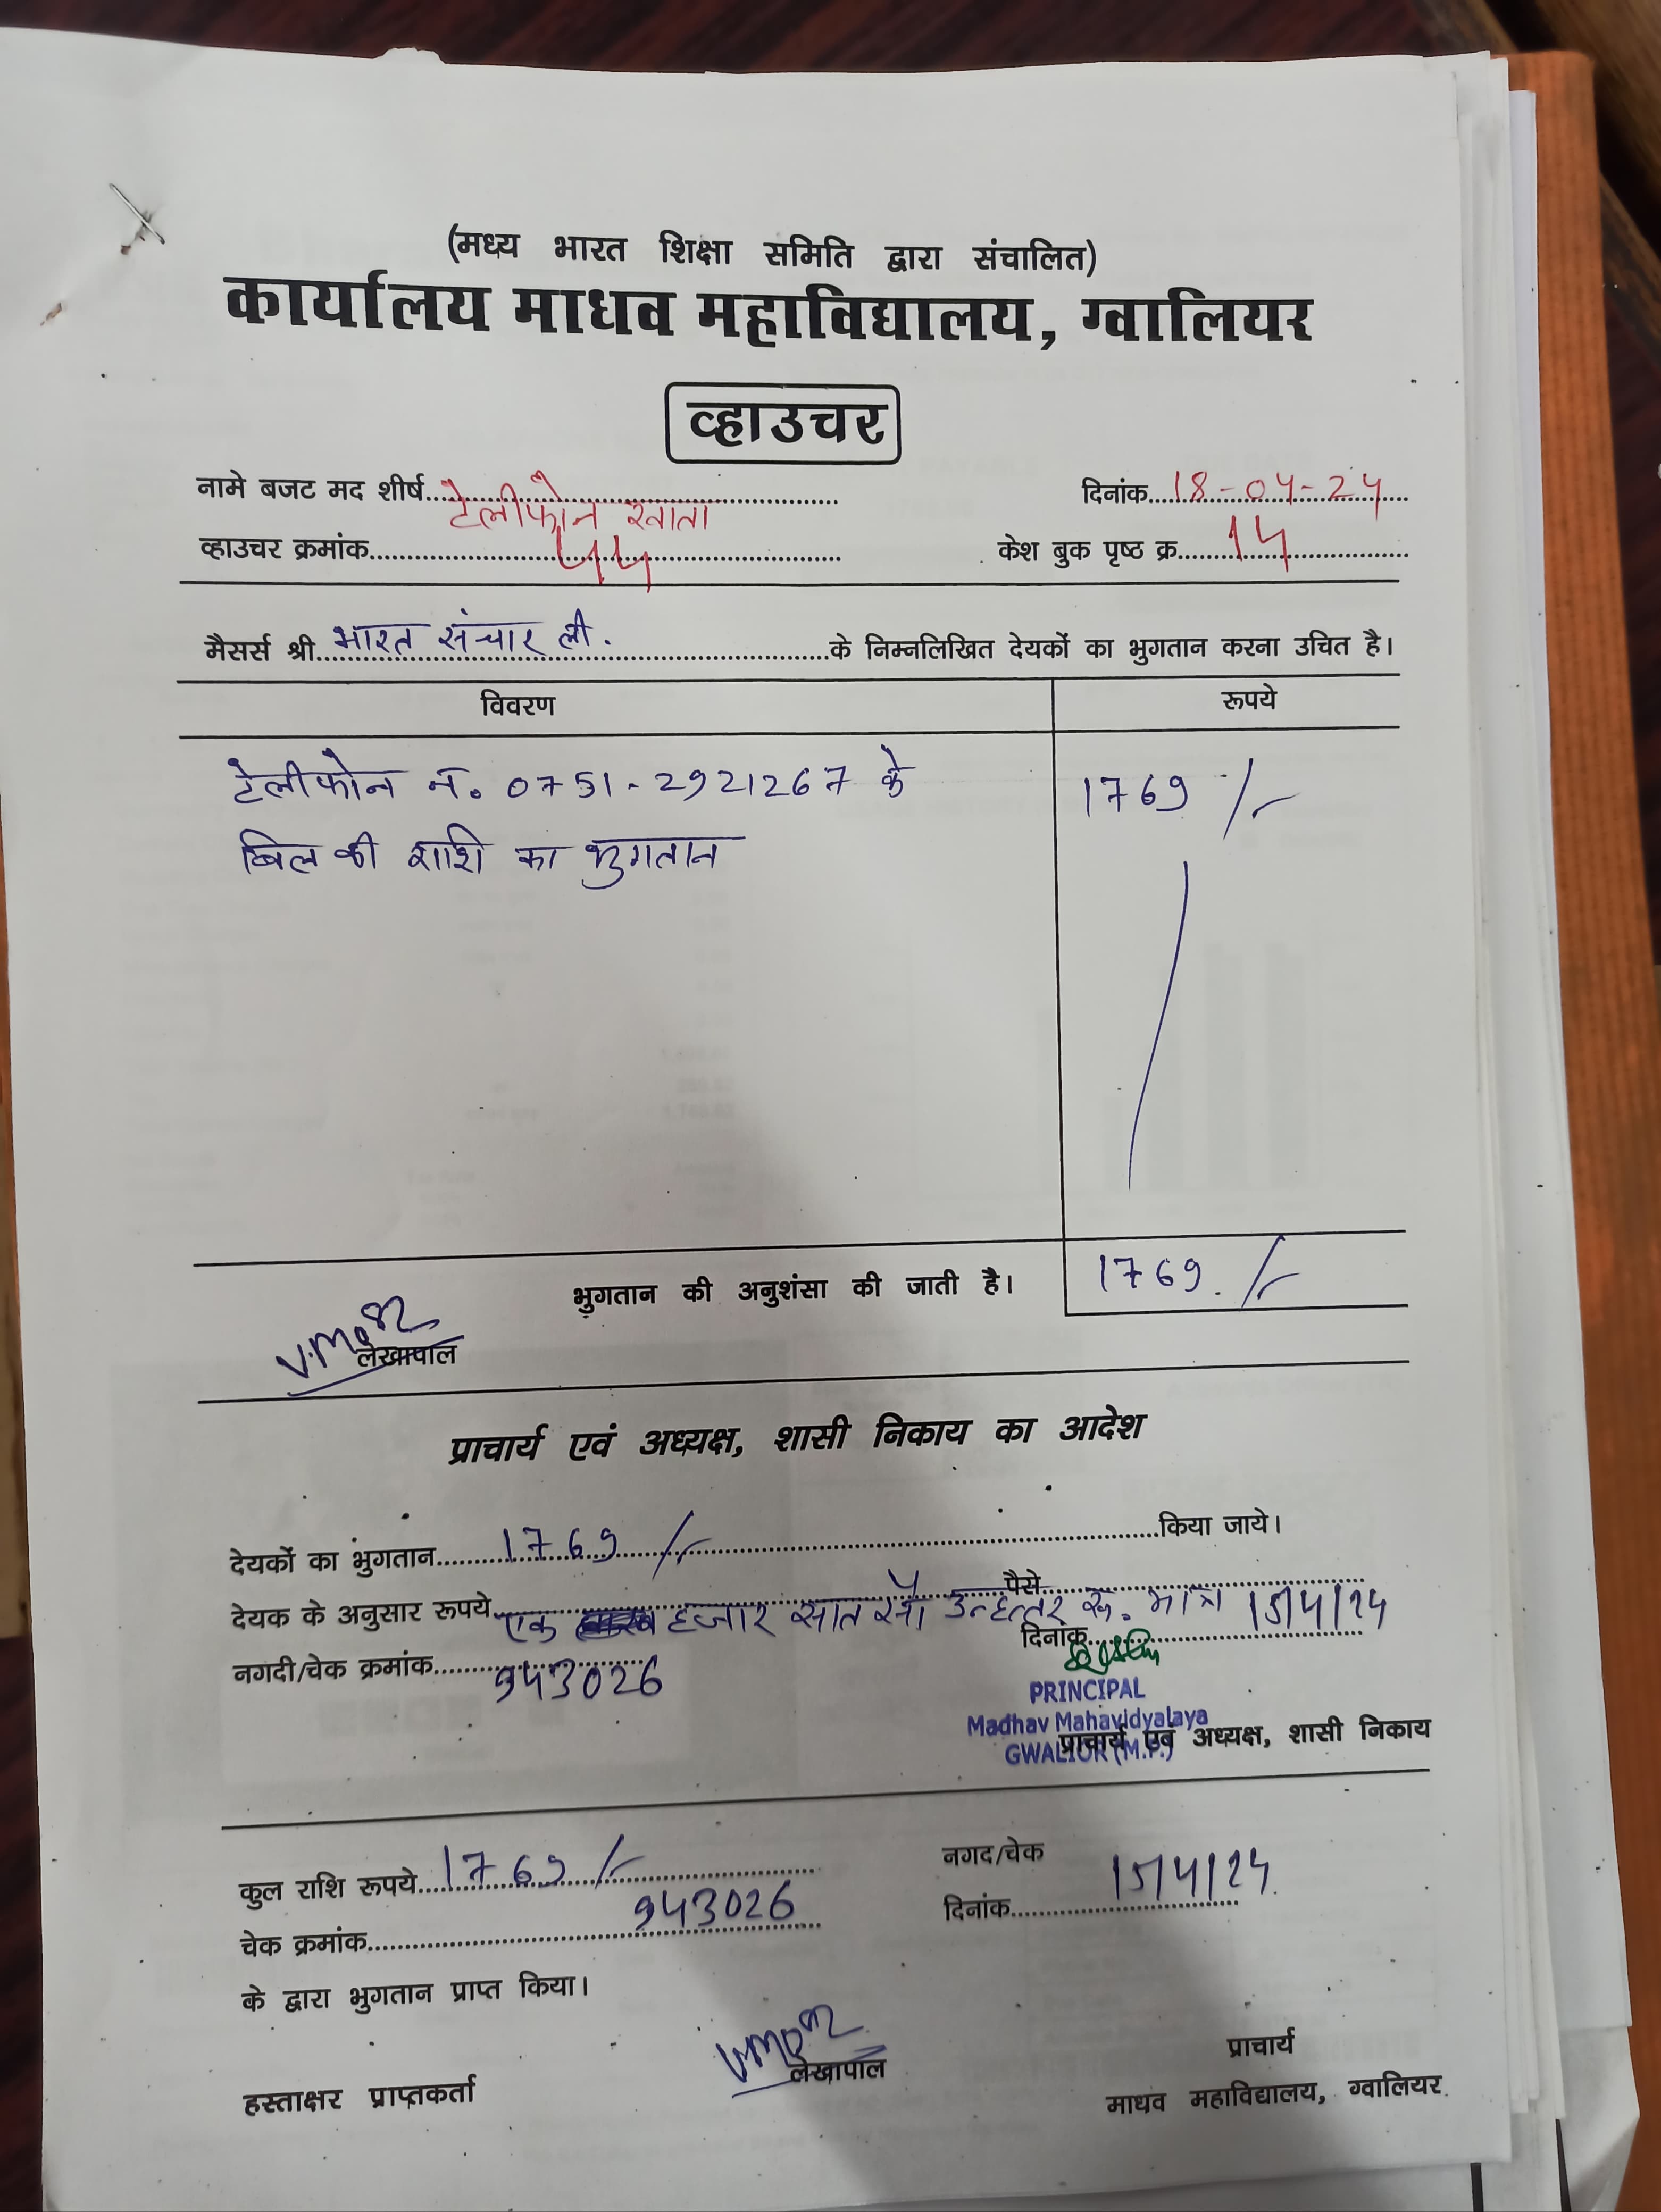 (मध्य भारत शिक्षा समिति द्वारा संचालित)
कार्यालय माधव महाविद्यालय, ग्वालियर
व्हाउचर
नामे बजट मद शीर्ष टेलीफोन खाता दिनांक 18-04-24
व्हाउचर क्रमांक केश बुक पृष्ठ क्र. 14
मैसर्स श्री भारत संचार ली. के निम्नलिखित देयकों का भुगतान करना उचित है।
विवरण रूपये
टेलीफोन नं. 0751-2921267 के 1769/-
बिल की राशि का भुगतान
भुगतान की अनुशंसा की जाती है। 1769/-
लेखापाल
प्राचार्य एवं अध्यक्ष, शासी निकाय का आदेश
देयकों का भुगतान 1769/- किया जाये।
देयक के अनुसार रूपये एक हजार सात सौ उन्हत्तर रू. मात्र पैसे
नगदी/चेक क्रमांक 943026 दिनांक 15/4/24
PRINCIPAL
Madhav Mahavidyalaya
GWALIOR (M.P.)
प्राचार्य एवं अध्यक्ष, शासी निकाय
कुल राशि रूपये 1769/- नगद/चेक
चेक क्रमांक 943026 दिनांक 15/4/24
के द्वारा भुगतान प्राप्त किया।
हस्ताक्षर प्राप्तकर्ता लेखापाल प्राचार्य
माधव महाविद्यालय, ग्वालियर